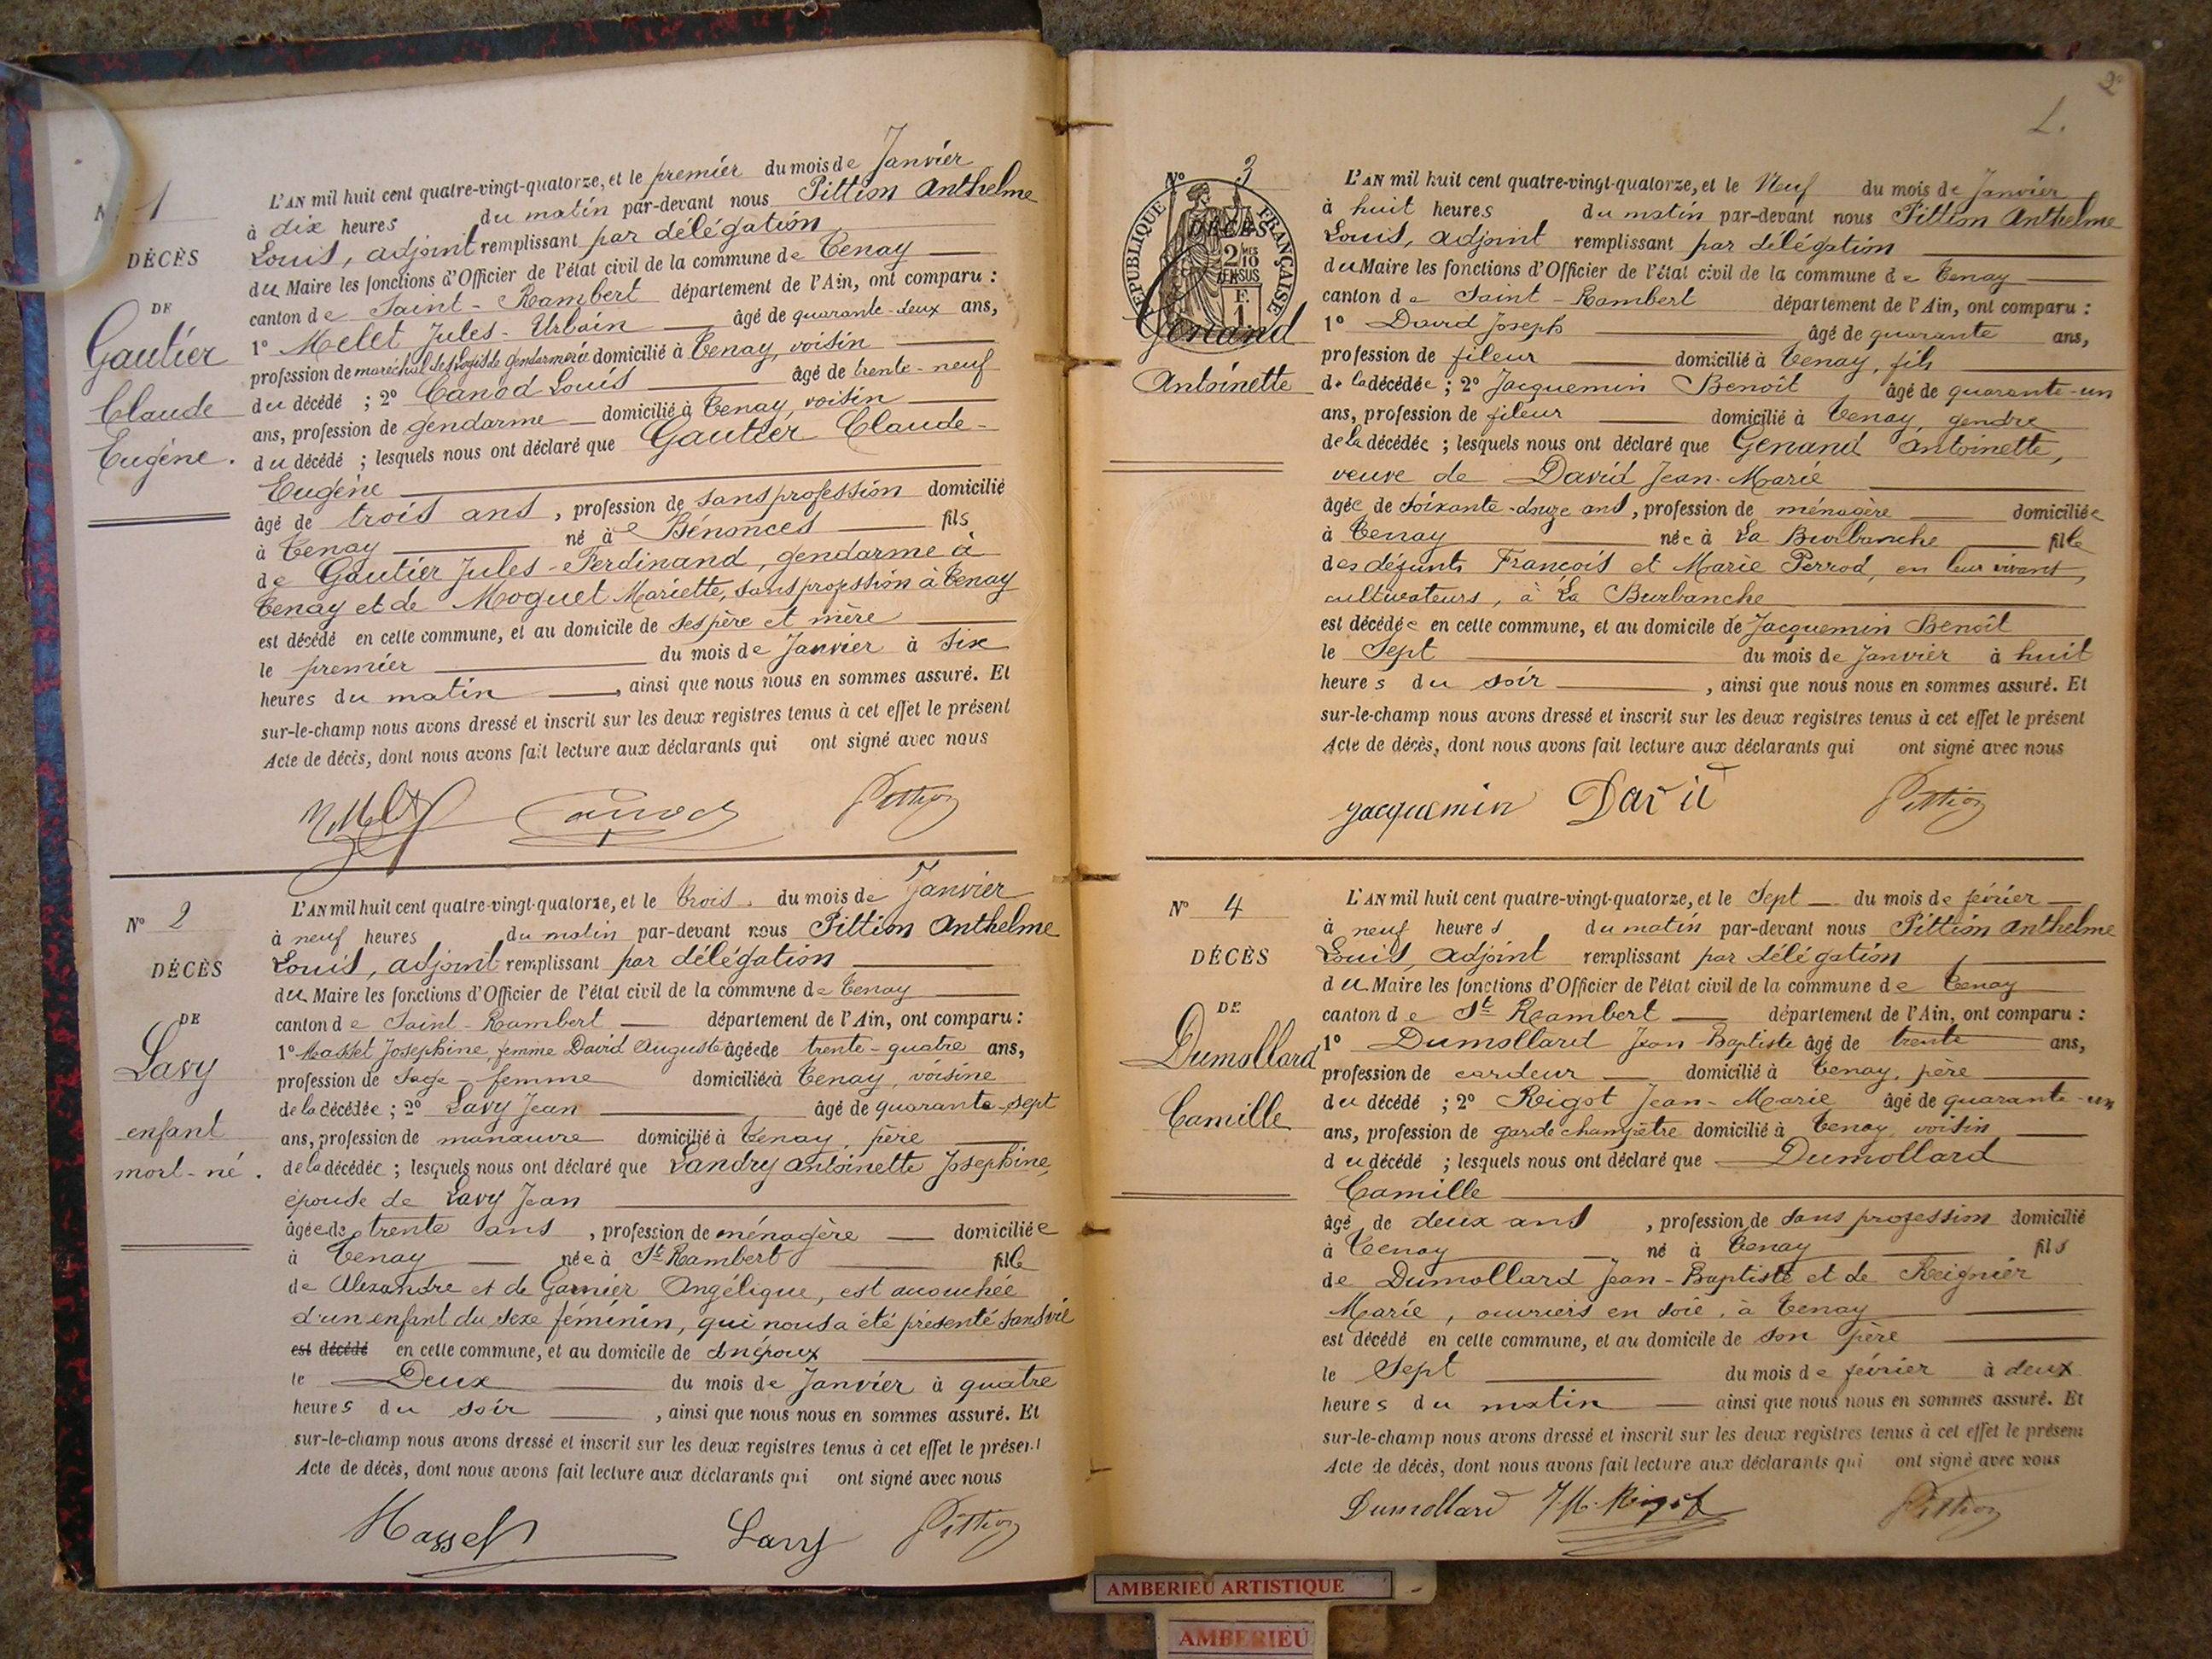 N° 1
DÉCÈS
DE
Gautier
Claude
Eugène.
L'AN mil huit cent quatre-vingt-quatorze, et le premier du mois de Janvier
à dix heures du matin par-devant nous Pittion Anthelme
Louis, adjoint remplissant par délégation
du Maire les fonctions d'Officier de l'état civil de la commune de Tenay
canton de Saint-Rambert département de l'Ain, ont comparu :
1° Melet Jules-Urbain âgé de quarante-deux ans,
profession de maréchal des logis de gendarmerie domicilié à Tenay, voisin
du décédé ; 2° Canod Louis âgé de trente-neuf
ans, profession de gendarme domicilié à Tenay, voisin
du décédé ; lesquels nous ont déclaré que Gautier Claude-
Eugène
âgé de trois ans, profession de sans profession domicilié
à Tenay né à Bénonces fils
de Gautier Jules-Ferdinand, gendarme à
Tenay et de Moguet Mariette, sans profession à Tenay
est décédé en cette commune, et au domicile de ses père et mère
le premier du mois de Janvier à six
heures du matin, ainsi que nous nous en sommes assuré. Et
sur-le-champ nous avons dressé et inscrit sur les deux registres tenus à cet effet le présent
Acte de décès, dont nous avons fait lecture aux déclarants qui ont signé avec nous
Canod Pittion
N° 2
DÉCÈS
DE
Lavy
enfant
mort-né.
L'AN mil huit cent quatre-vingt-quatorze, et le trois du mois de Janvier
à neuf heures du matin par-devant nous Pittion Anthelme
Louis, adjoint remplissant par délégation
du Maire les fonctions d'Officier de l'état civil de la commune de Tenay
canton de Saint-Rambert département de l'Ain, ont comparu :
1° Masset Josephine, femme David Auguste âgée de trente-quatre ans,
profession de sage-femme domiciliée à Tenay, voisine
de la décédée ; 2° Lavy Jean âgé de quarante-sept
ans, profession de manœuvre domicilié à Tenay, père
de la décédée ; lesquels nous ont déclaré que Landry Antoinette Josephine,
épouse de Lavy Jean
âgée de trente ans, profession de ménagère domiciliée
à Tenay née à St Rambert fille
de Alexandre et de Garnier Angélique, est accouchée
d'un enfant du sexe féminin, qui nous a été présenté sans vie
est décédé en cette commune, et au domicile de son époux
le Deux du mois de Janvier à quatre
heures du soir, ainsi que nous nous en sommes assuré. Et
sur-le-champ nous avons dressé et inscrit sur les deux registres tenus à cet effet le présent
Acte de décès, dont nous avons fait lecture aux déclarants qui ont signé avec nous
Masset Lavy Pittion
2
N° 3
RÉPUBLIQUE FRANÇAISE
DÉCÈS
2/10 MES
EN SUS
F.
1
Genand
Antoinette
L'AN mil huit cent quatre-vingt-quatorze, et le Neuf du mois de Janvier
à huit heures du matin par-devant nous Pittion Anthelme
Louis, adjoint remplissant par délégation
du Maire les fonctions d'Officier de l'état civil de la commune de Tenay
canton de Saint-Rambert département de l'Ain, ont comparu :
1° David Joseph âgé de quarante ans,
profession de fileur domicilié à Tenay, fils
de la décédée ; 2° Jacquemin Benoît âgé de quarante-un
ans, profession de fileur domicilié à Tenay, gendre
de la décédée ; lesquels nous ont déclaré que Genand Antoinette,
veuve de David Jean-Marie
âgée de soixante-douze ans, profession de ménagère domiciliée
à Tenay née à La Burbanche fille
des défunts François et Marie Perrod, en leur vivant,
cultivateurs, à La Burbanche
est décédée en cette commune, et au domicile de Jacquemin Benoît
le Sept du mois de Janvier à huit
heures du soir, ainsi que nous nous en sommes assuré. Et
sur-le-champ nous avons dressé et inscrit sur les deux registres tenus à cet effet le présent
Acte de décès, dont nous avons fait lecture aux déclarants qui ont signé avec nous
Jacquemin David Pittion
N° 4
DÉCÈS
DE
Dumollard
Camille
L'AN mil huit cent quatre-vingt-quatorze, et le Sept du mois de février
à neuf heures du matin par-devant nous Pittion Anthelme
Louis, adjoint remplissant par délégation
du Maire les fonctions d'Officier de l'état civil de la commune de Tenay
canton de St Rambert département de l'Ain, ont comparu :
1° Dumollard Jean-Baptiste âgé de trente ans,
profession de cardeur domicilié à Tenay, père
du décédé ; 2° Rigot Jean-Marie âgé de quarante-un
ans, profession de garde champêtre domicilié à Tenay, voisin
du décédé ; lesquels nous ont déclaré que Dumollard
Camille
âgé de deux ans, profession de sans profession domicilié
à Tenay né à Tenay fils
de Dumollard Jean-Baptiste et de Reignier
Marie, ouvriers en soie, à Tenay
est décédé en cette commune, et au domicile de son père
le Sept du mois de février à deux
heures du matin ainsi que nous nous en sommes assuré. Et
sur-le-champ nous avons dressé et inscrit sur les deux registres tenus à cet effet le présent
Acte de décès, dont nous avons fait lecture aux déclarants qui ont signé avec nous
Dumollard J.M. Rigot Pittion
AMBERIEU ARTISTIQUE
AMBERIEU